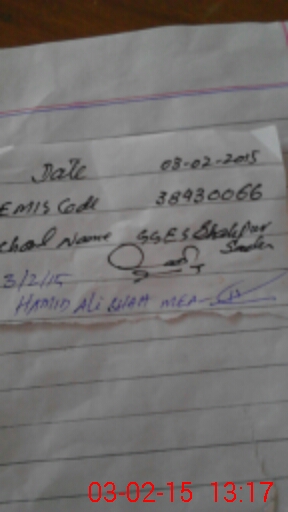 Date 03-02-2015
EMIS Code 38930066
chool Name GGES
3/2/15
HAMID Ali SHAH MEA
03-02-15 13:17